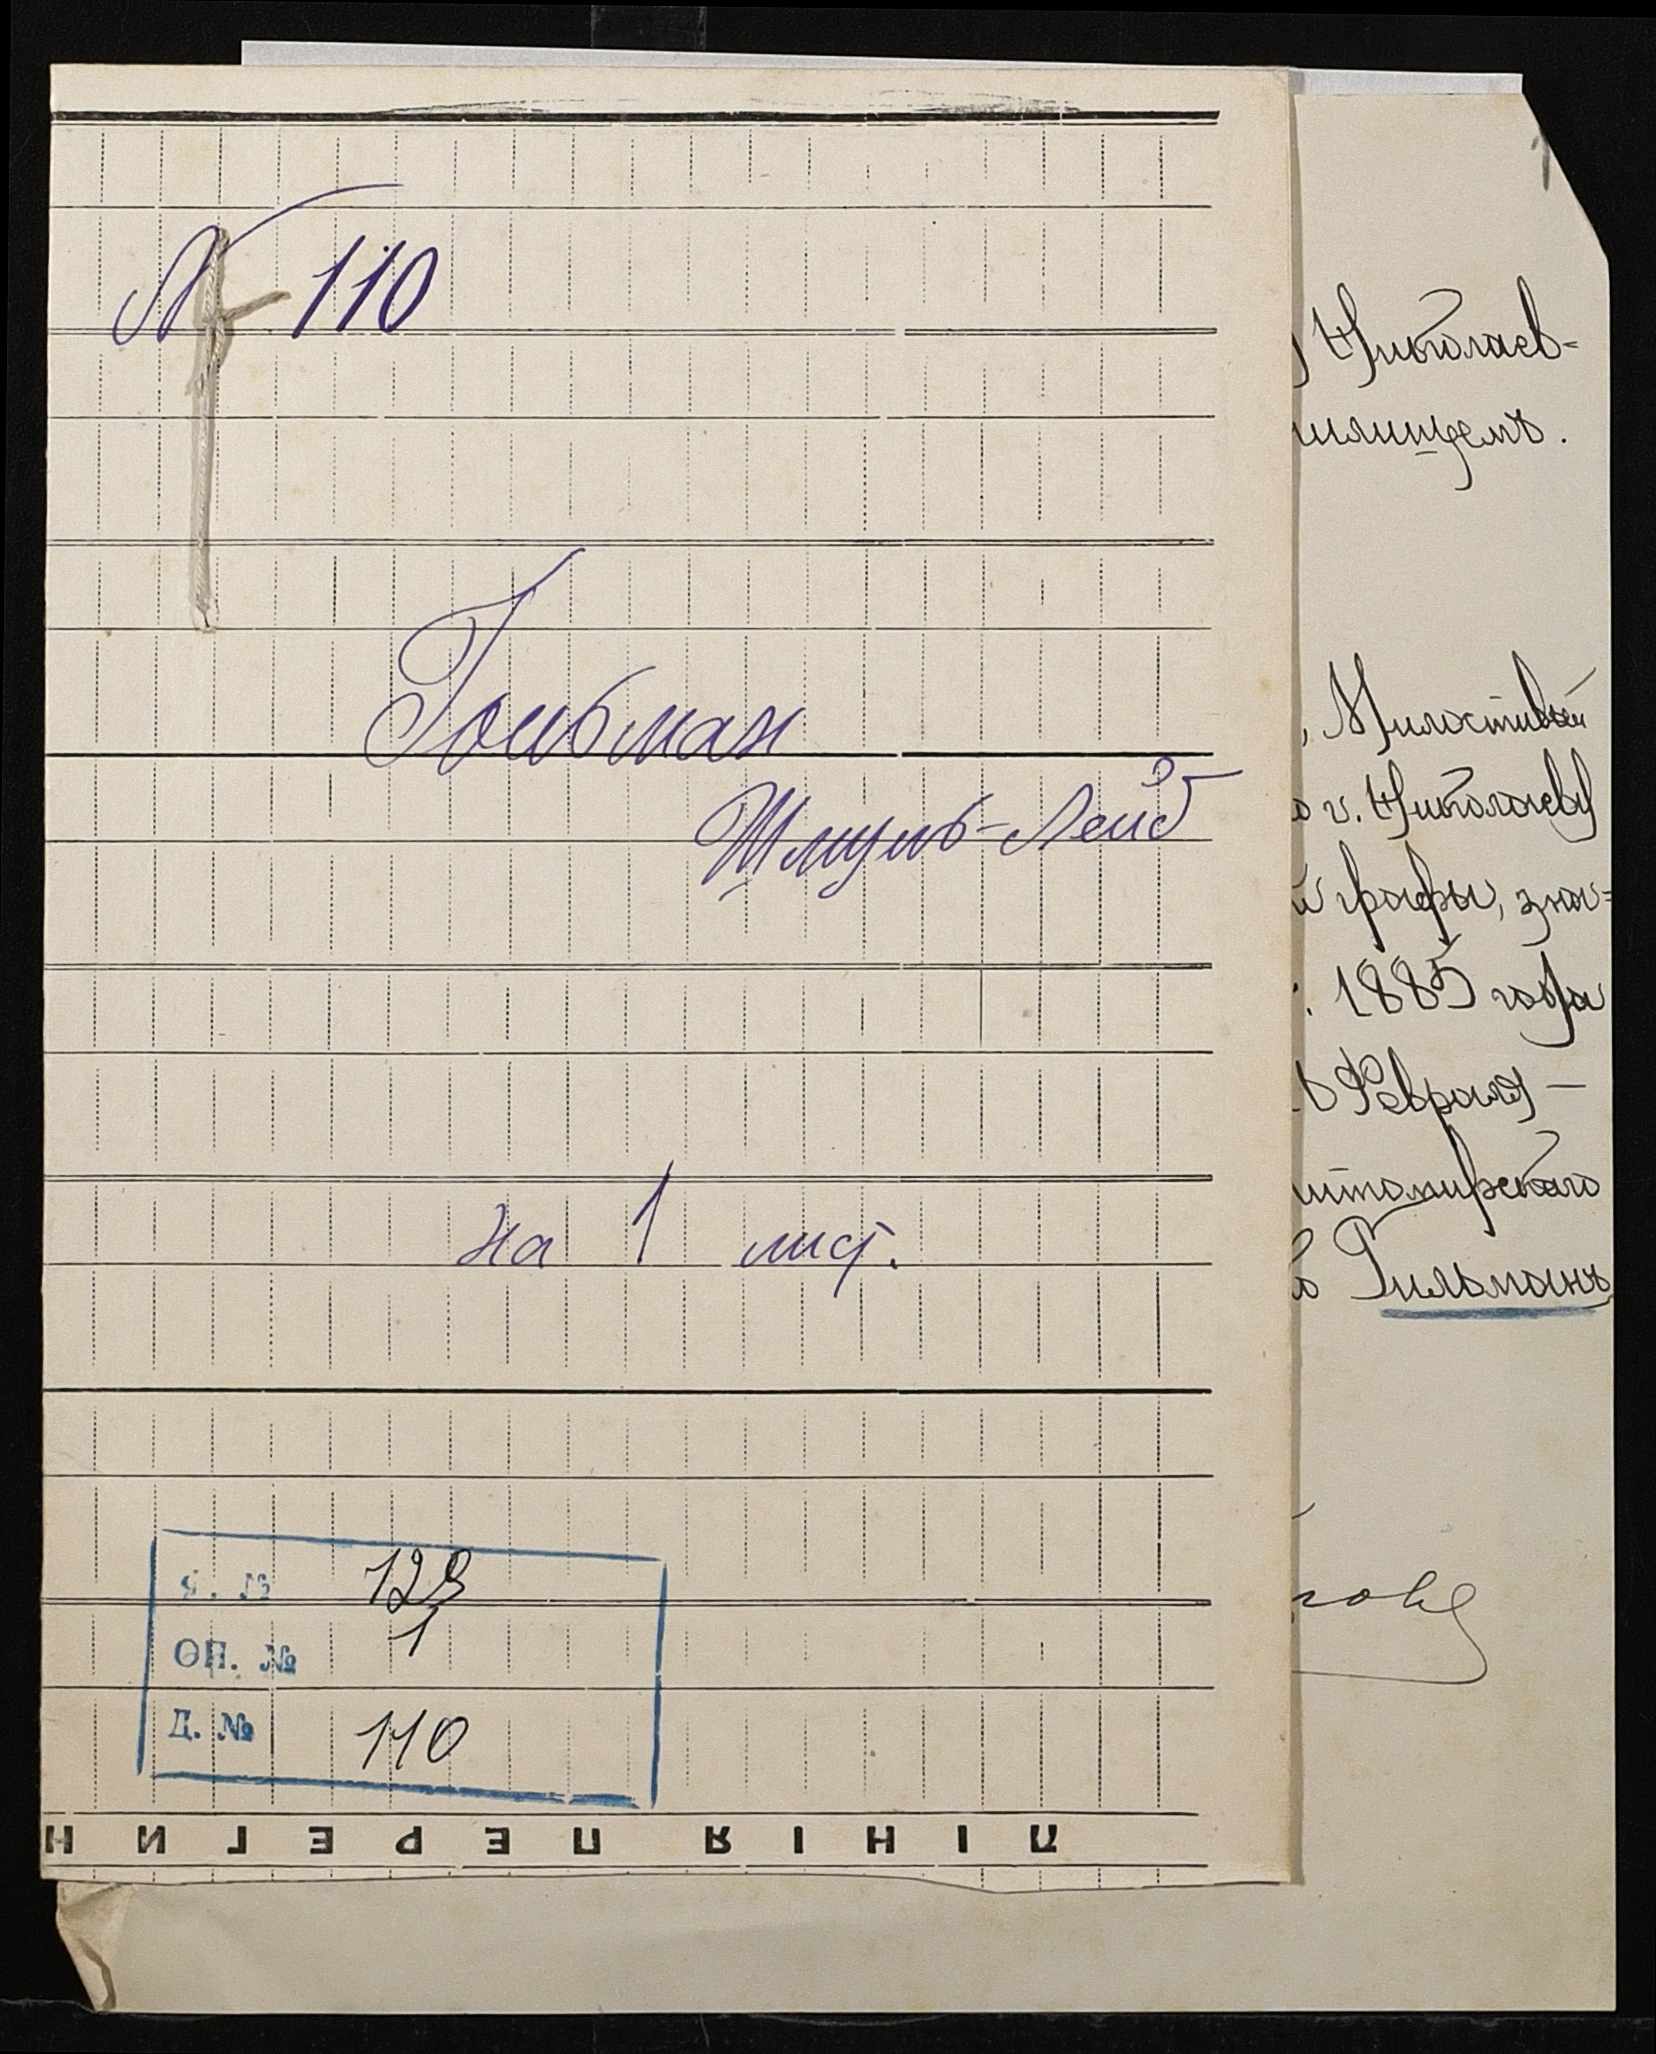 № 110
Гольман
Шмуль-Лейб
на 1 лист.
129
ОП. № 1
Д. № 110
НИГЕРЕП ЯІНІЛ
Николаев-
илищемъ.
, Милостивый
г. Николаеву
графы, зна-
1885 года
Февраля —
итомирскаго
Гильманъ